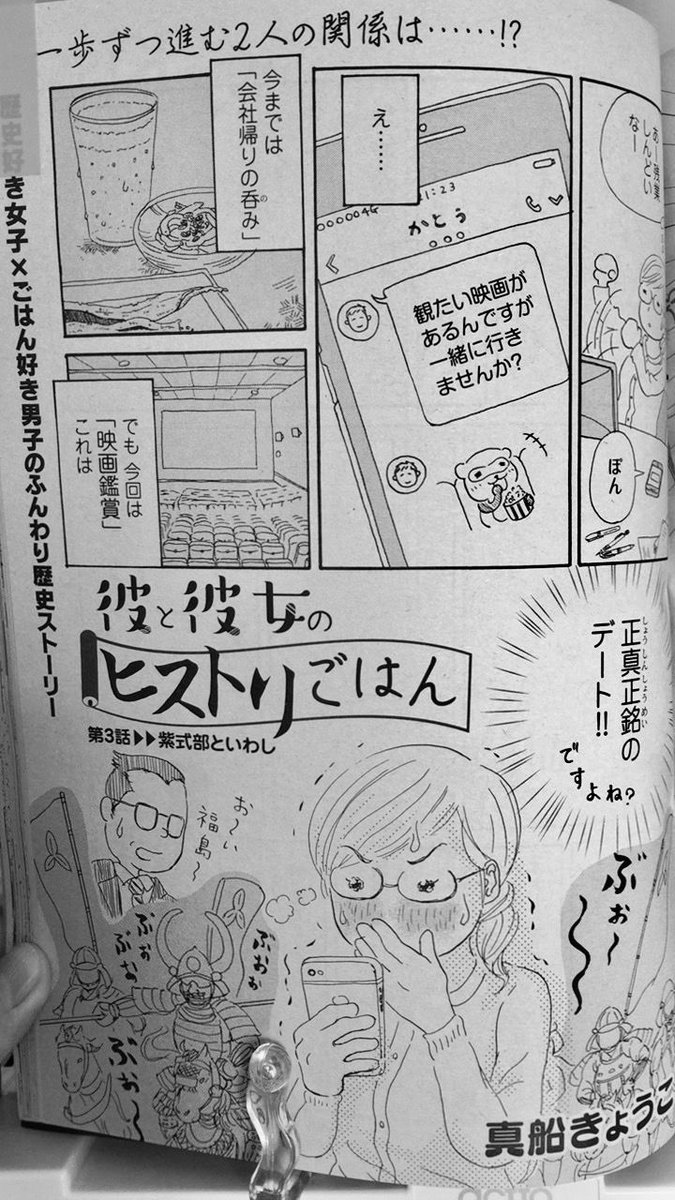 一歩ずつ進む2人の関係は……!?
歴史好き女子×ごはん好き男子のふんわり歴史ストーリー
しんどい
なー
ぽん
え……
4G
1:23
かとう
観たい映画が
あるんですが
一緒に行き
ませんか?
今までは
「会社帰りの呑み」
でも 今回は
「映画鑑賞」
これは
正真正銘の
デート!!
ですよね?
彼と彼女の
ヒストリごはん
第3話▶▶紫式部といわし
お〜い
福島〜
ぶぉ〜
ぶぉぉ
ぶぉ
ぶぉぉ
ぶぉ〜
真船きょうこ